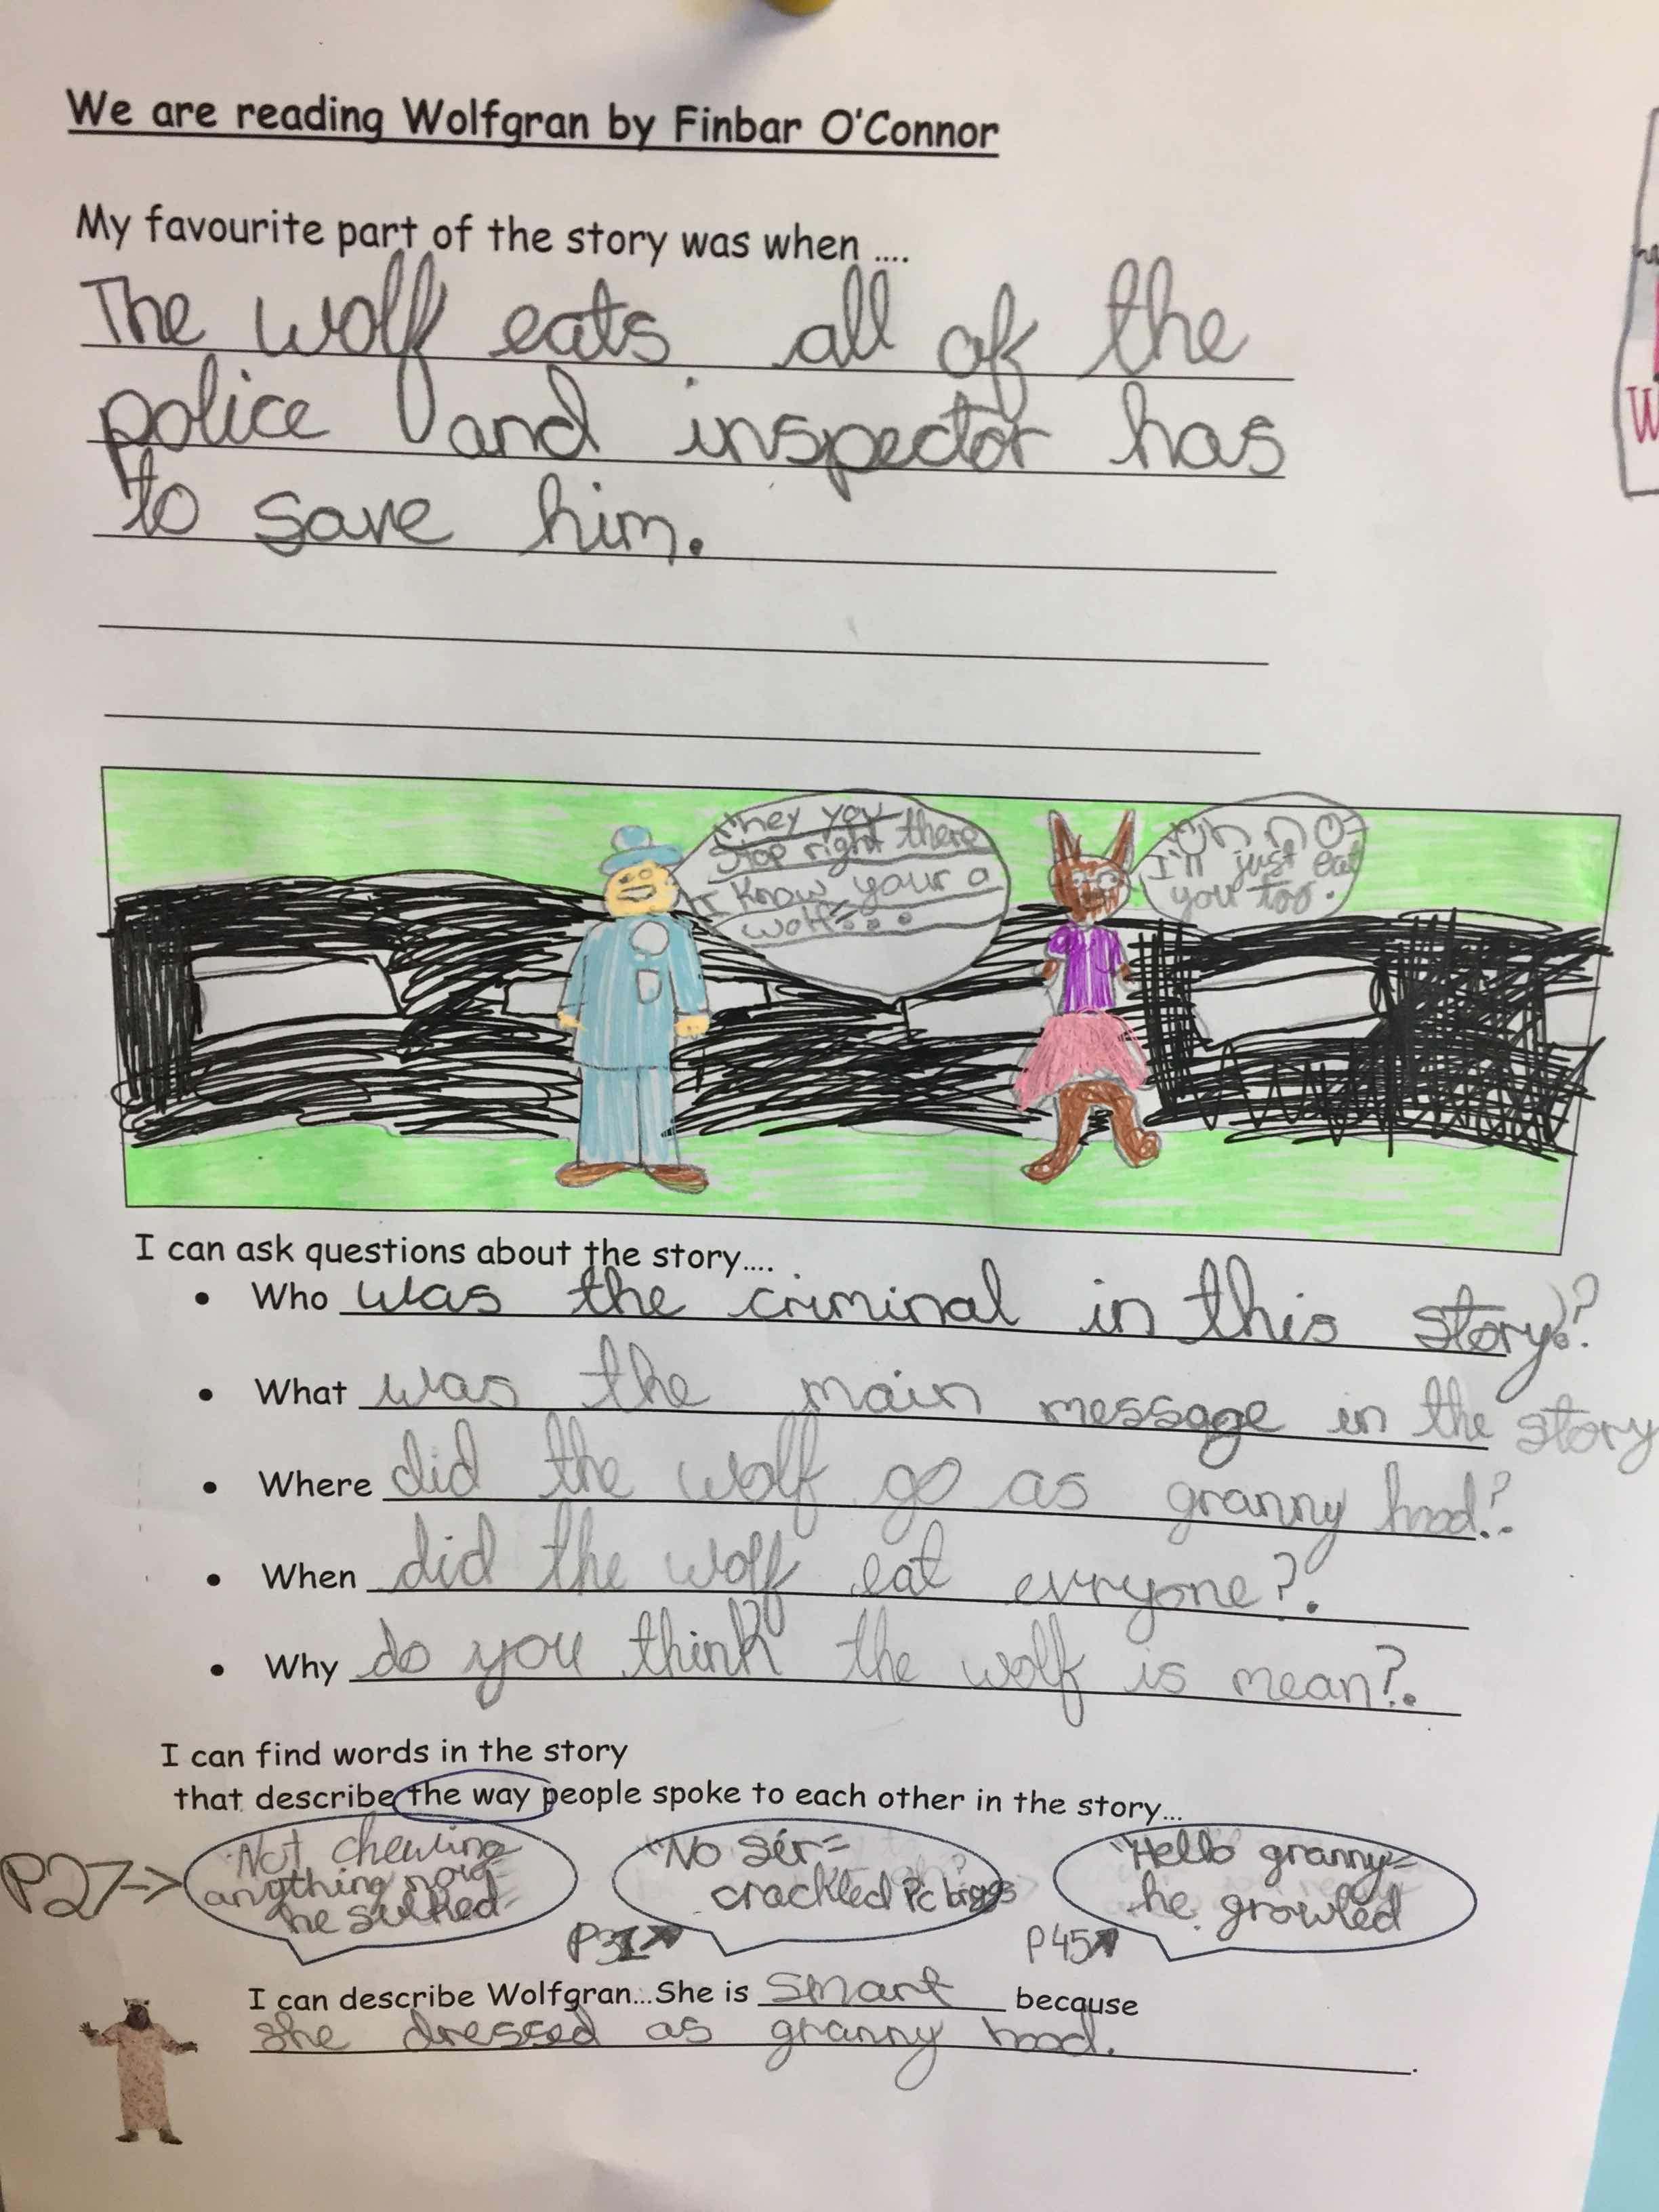 We are reading Wolfgran by Finbar O'Connor
My favourite part of the story was when ....
The wolf eats all of the
police and inspector has
to save him.
hey you
stop right there
I know your a
wolf
Uh no
I'll just eat
you too.
I can ask questions about the story....
• Who was the criminal in this story?
• What was the main message in the story
• Where did the wolf go as granny hood?
• When did the wolf eat evryone?.
• Why do you think the wolf is mean?.
I can find words in the story
that describe the way people spoke to each other in the story...
P27->
Not chewing
anything now
he sulked
"No sér=
crackled Pc biggs
P31
"Hello granny=
he growled
P45
I can describe Wolfgran...She is smart because
she dressed as granny hood.
W